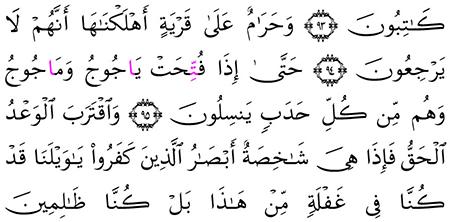 كَٰتِبُونَ ٩٣ وَحَرَٰمٌ عَلَىٰ قَرْيَةٍ أَهْلَكْنَٰهَا أَنَّهُمْ لَا
يَرْجِعُونَ ٩٤ حَتَّىٰ إِذَا فُتِّحَتْ يَاجُوجُ وَمَاجُوجُ
وَهُم مِّن كُلِّ حَدَبٍ يَنسِلُونَ ٩٥ وَٱقْتَرَبَ ٱلْوَعْدُ
ٱلْحَقُّ فَإِذَا هِيَ شَٰخِصَةٌ أَبْصَٰرُ ٱلَّذِينَ كَفَرُوا۟ يَٰوَيْلَنَا قَدْ
كُنَّا فِي غَفْلَةٍ مِّنْ هَٰذَا بَلْ كُنَّا ظَٰلِمِينَ